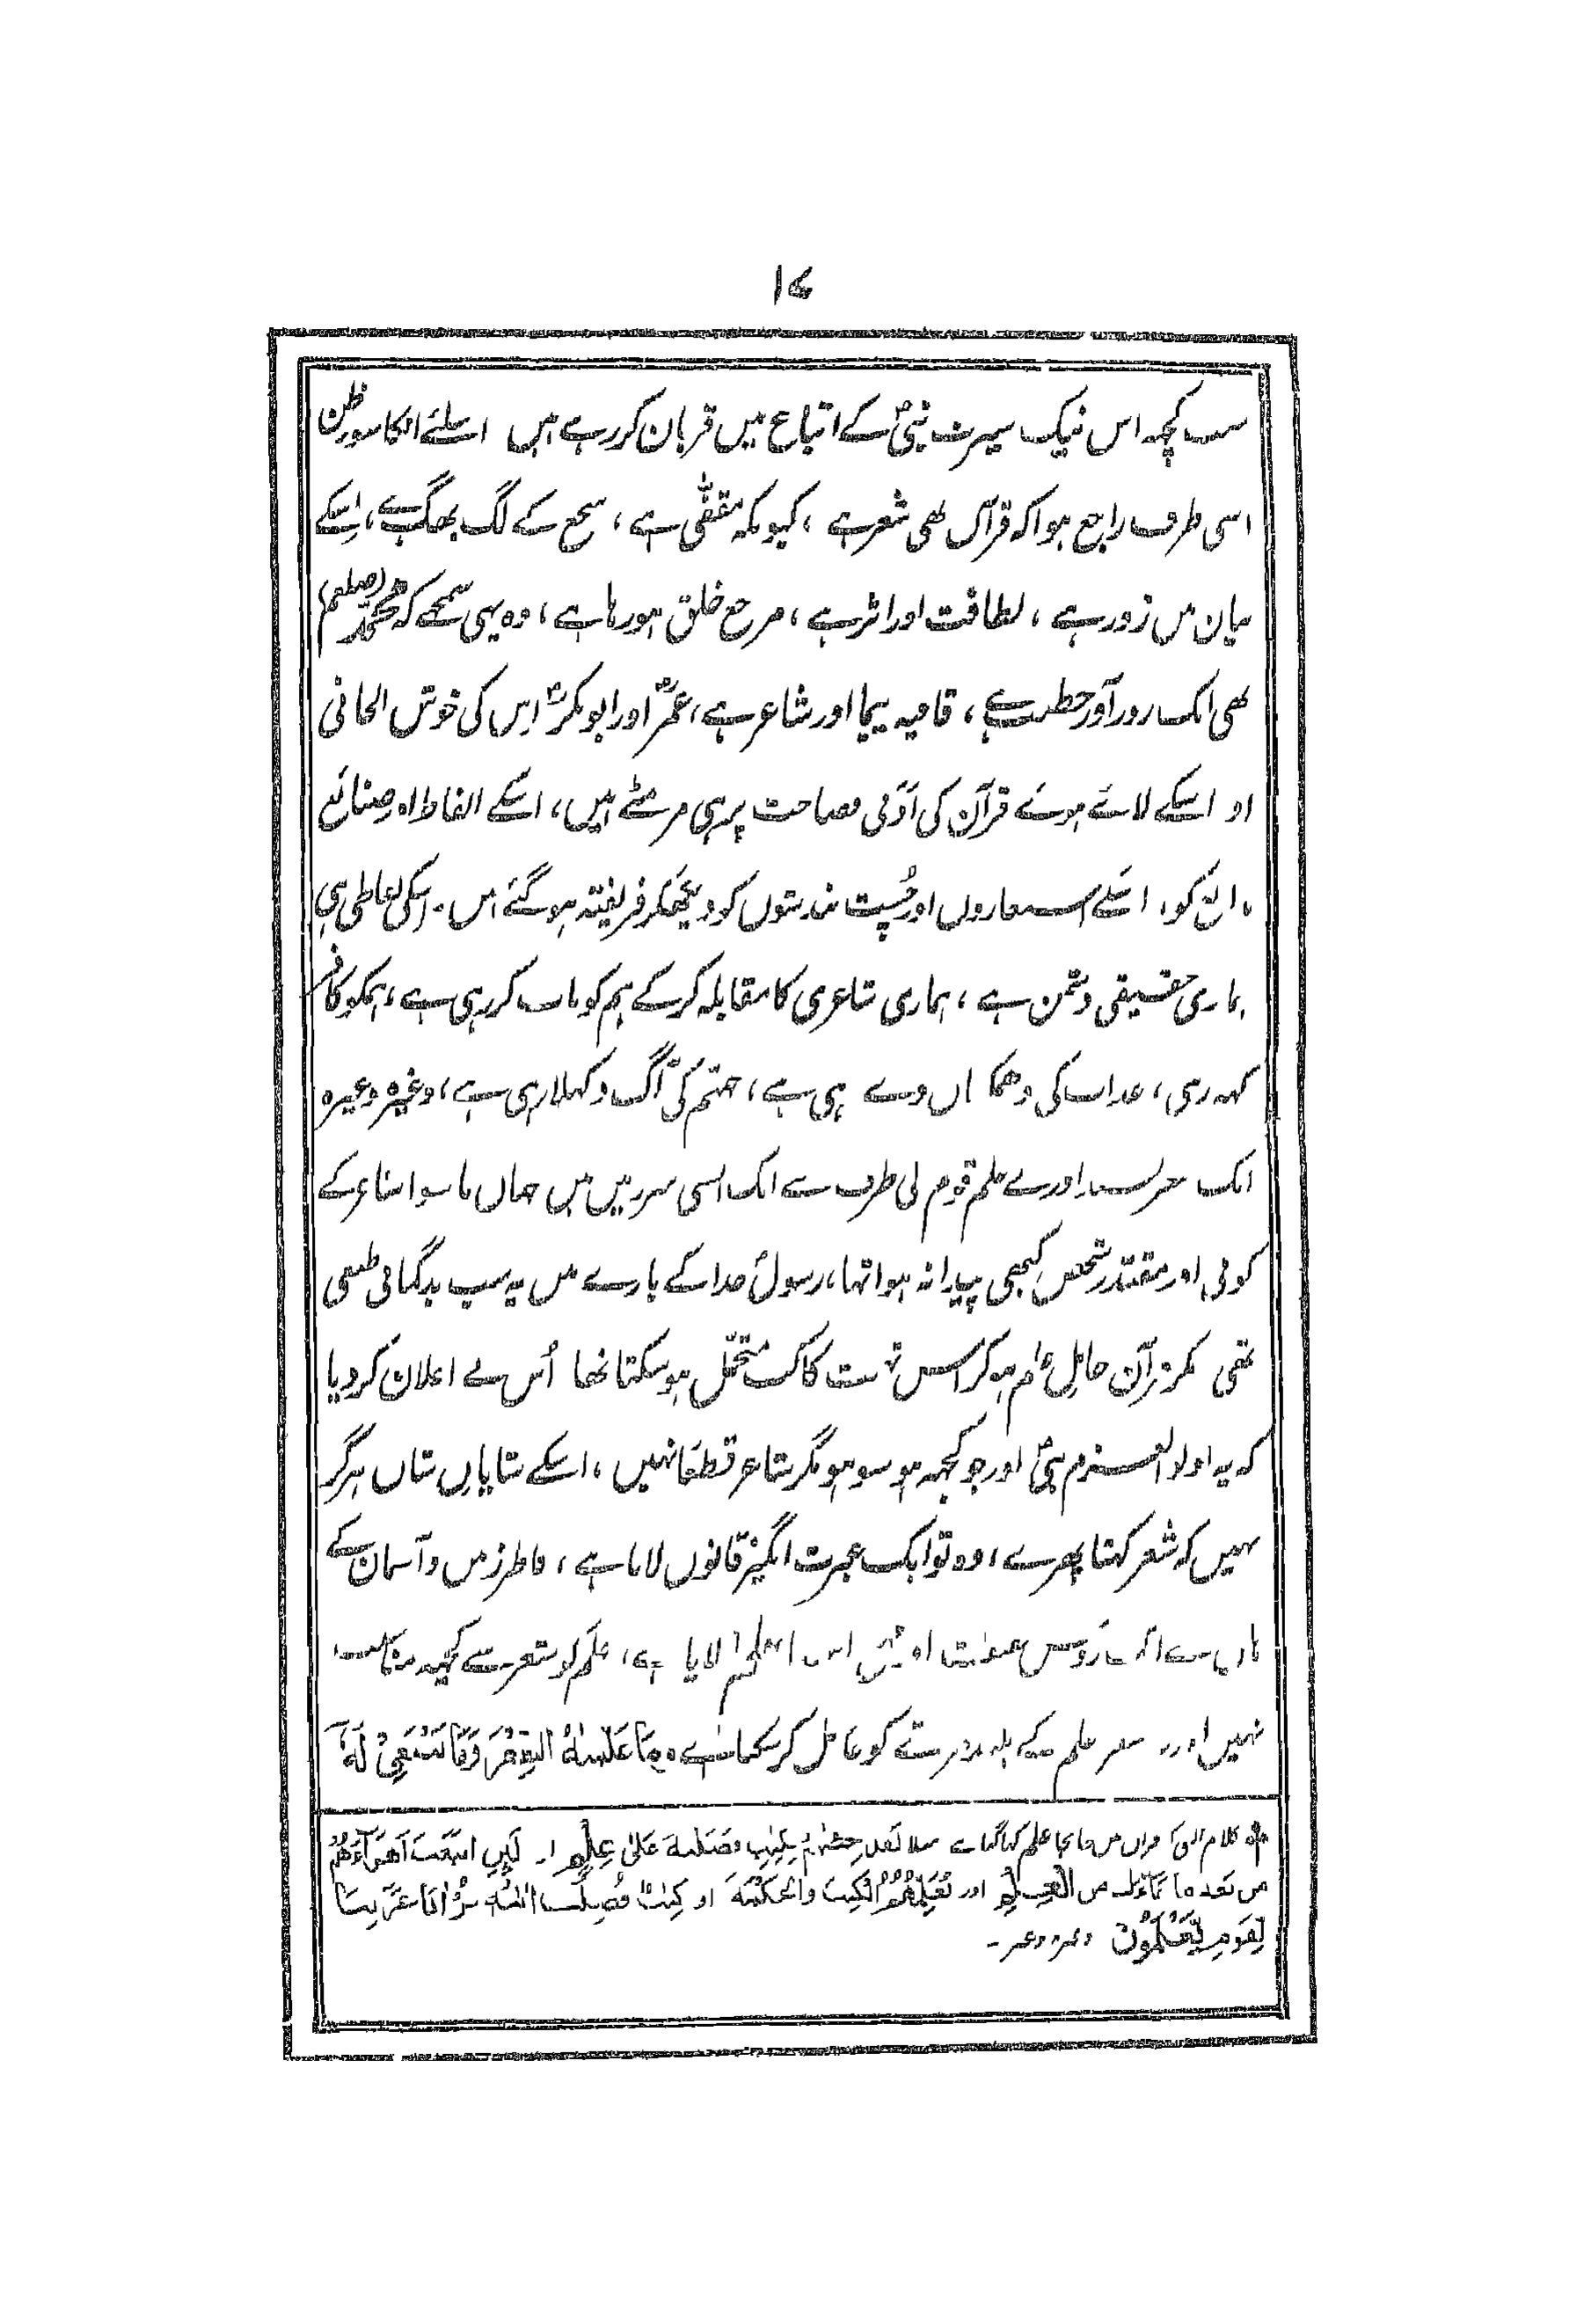 ۱۷
سب کچھ اس نیک سیرت نبیؐ کے اتباع میں قربان کر رہے ہیں اسلئے انکا سوء ظن
اسی طرف راجع ہوا کہ قرآن بھی شعر ہے ، کیونکہ مقفّٰی ہے ، سجع کے لگ بھگ ہے ، اِسکے
بیان میں زور ہے ، لطافت اور اثر ہے ، مرجع خلق ہو رہا ہے ، وہ یہی سمجھے کہ محمدؐ (صلعم)
بھی ایک زور آور خطیب ہے ، قافیہ پیما اور شاعر ہے ، عمرؓ اور ابوبکرؓ اِس کی خوش الحانی
اور اسکے لائے ہوئے قرآن کی ادبی فصاحت پر ہی مر مٹے ہیں ، اسکے الفاظ اور صنائع
کو ، اسکے استعاروں اور چُست بندشوں کو دیکھکر فریفتہ ہو گئے ہیں . اسکی لفاظی ہی
ہماری حقیقی دشمن ہے ، ہماری شاعری کا مقابلہ کر کے ہم کو مات کر رہی ہے ، ہمکو کافر
کہہ رہی ، عذاب کی دھمکیاں دے رہی ہے ، جہنم کی آگ دکھلا رہی ہے ، وغیرہ وغیرہ
ایک اور بے علم قوم کی طرف سے ایک ایسی سرزمین میں جہاں ماسوا شاعر کے
کوئی اور مقتدر شخص کبھی پیدا نہ ہوا تھا ، رسولؐ خدا کے بارے میں یہ سب بدگمانی طبعی
تھی مگر قرآن حاملِ علم ہو کر اس تہمت کا کب متحمّل ہو سکتا تھا اُس نے اعلان کر دیا
کہ یہ اولو العزم نبیؐ اور جو کچھ ہو سو ہو مگر شاعر قطعًا نہیں ، اسکے شایاںِ شاں ہرگز
نہیں کہ شعر کہتا پھرے ، وہ تو ایک عبرت انگیز قانون لایا ہے ، فاطر زمیں و آسمان کے
ہاں سے لایا ہے ، علم کو شعر سے کچھ مناسبت
نہیں اور نہ شعر علم کے کو حاصل کر سکتا ہے وَمَا عَلَّمْنٰهُ الشِّعْرَ وَمَا يَنْبَغِيْ لَهٗ
کلام الٰہی کو قرآن میں جا بجا علم کہا گیا ہے مثلا لَقَدْ جِئْنٰهُمْ بِكِتٰبٍ فَصَّلْنٰهُ عَلٰی عِلْمٍ اور لَئِنِ اتَّبَعْتَ اَهْوَآءَهُمْ
مِنْ بَعْدِ مَا جَآءَكَ مِنَ الْعِلْمِ اور يُعَلِّمُهُمُ الْكِتٰبَ وَالْحِكْمَةَ اور كِتٰبٌ فُصِّلَتْ اٰيٰتُهٗ قُرْاٰنًا عَرَبِيًّا
لِقَوْمٍ يَّعْلَمُوْنَ وغیرہ وغیرہ ۔